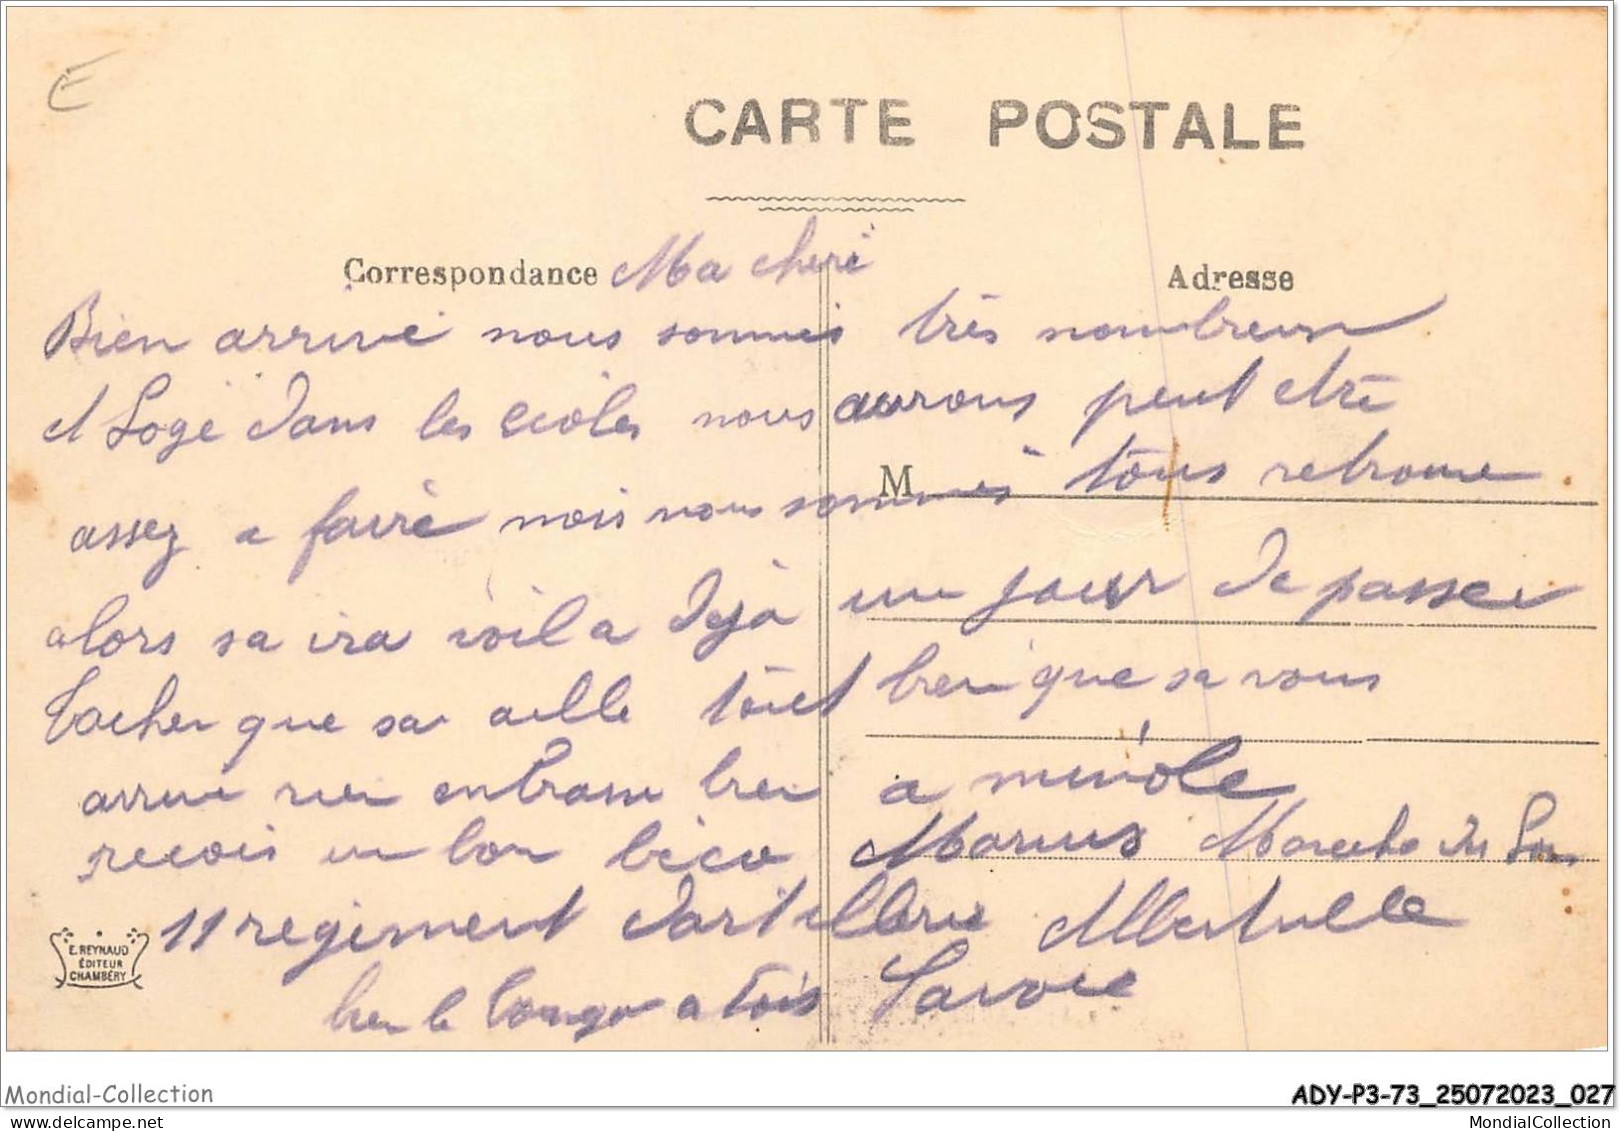 E
CARTE POSTALE
Correspondance Ma cheré
Adresse
Bien arrivé nous sommes très nombreux
et Logé dans les ecioles nous aurons peut etré
M
assez a fairé mois nous sommés tous retrouve
alors sa ira voila deja un jour de passer
tacher que sa aille tout bien que sa vous
arrive rien embrasse bien a
recois un bon Marius Marecha du
11 regiment dartillerie Albertville
bien le a tois Savoie
E. REYNAUD
ÉDITEUR
CHAMBÉRY
Mondial-Collection
ADY-P3-73_25072023_027
www.delcampe.net
MondialCollection